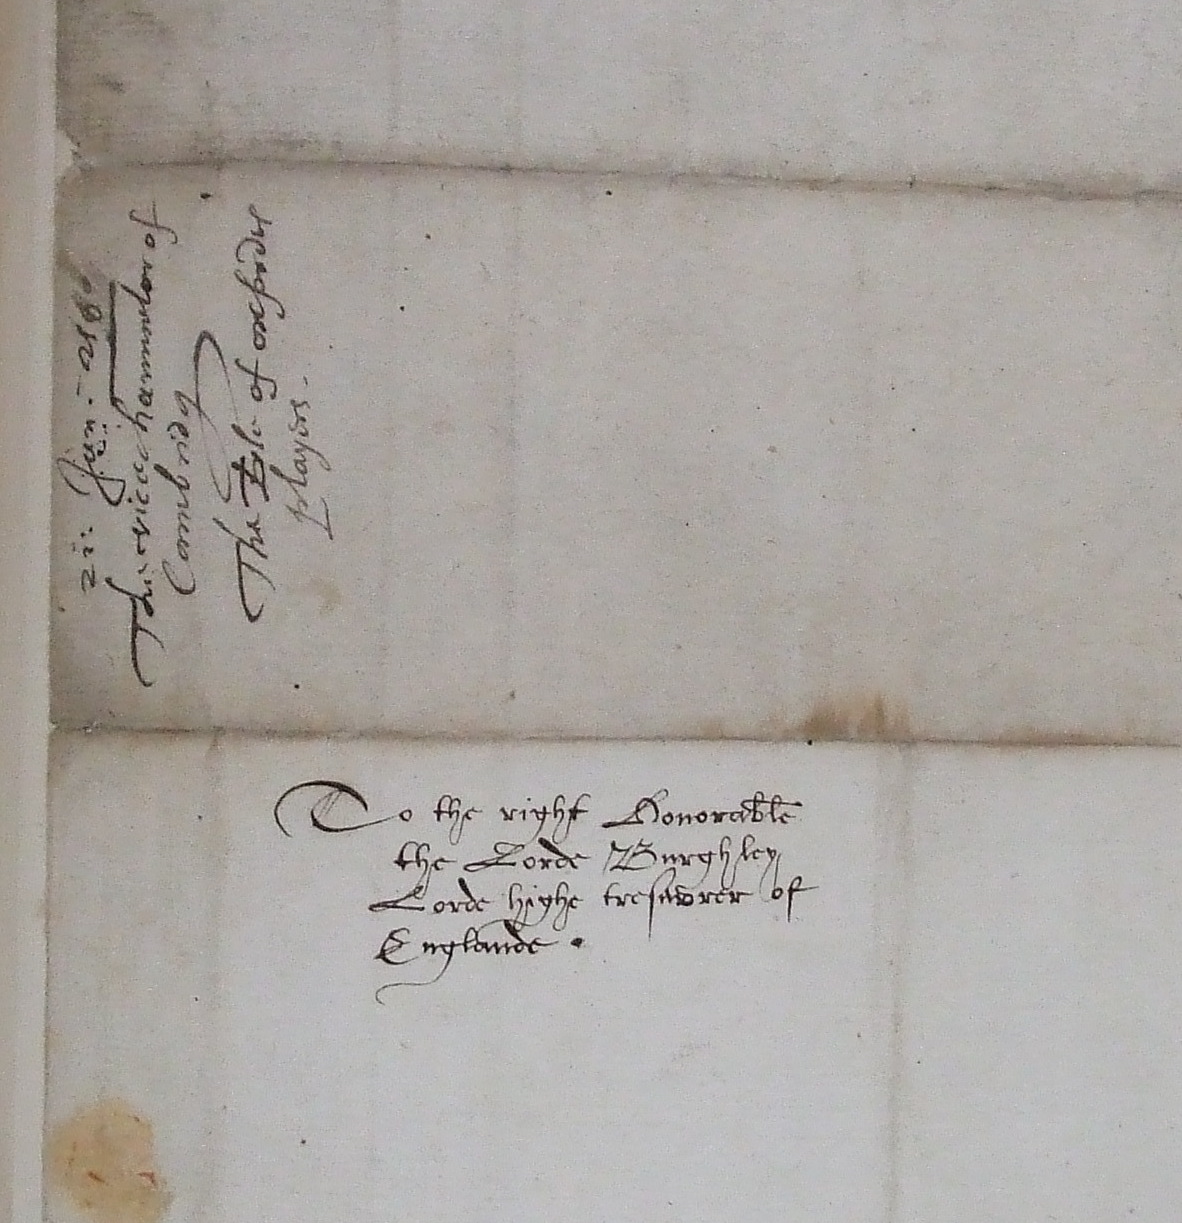 21: Jun: 1580
The vicechauncelor of
Cambridg
The Erle of oxfords
players.
To the right Honorable
the Lorde Burghley
Lorde highe tresurer of
Englande .